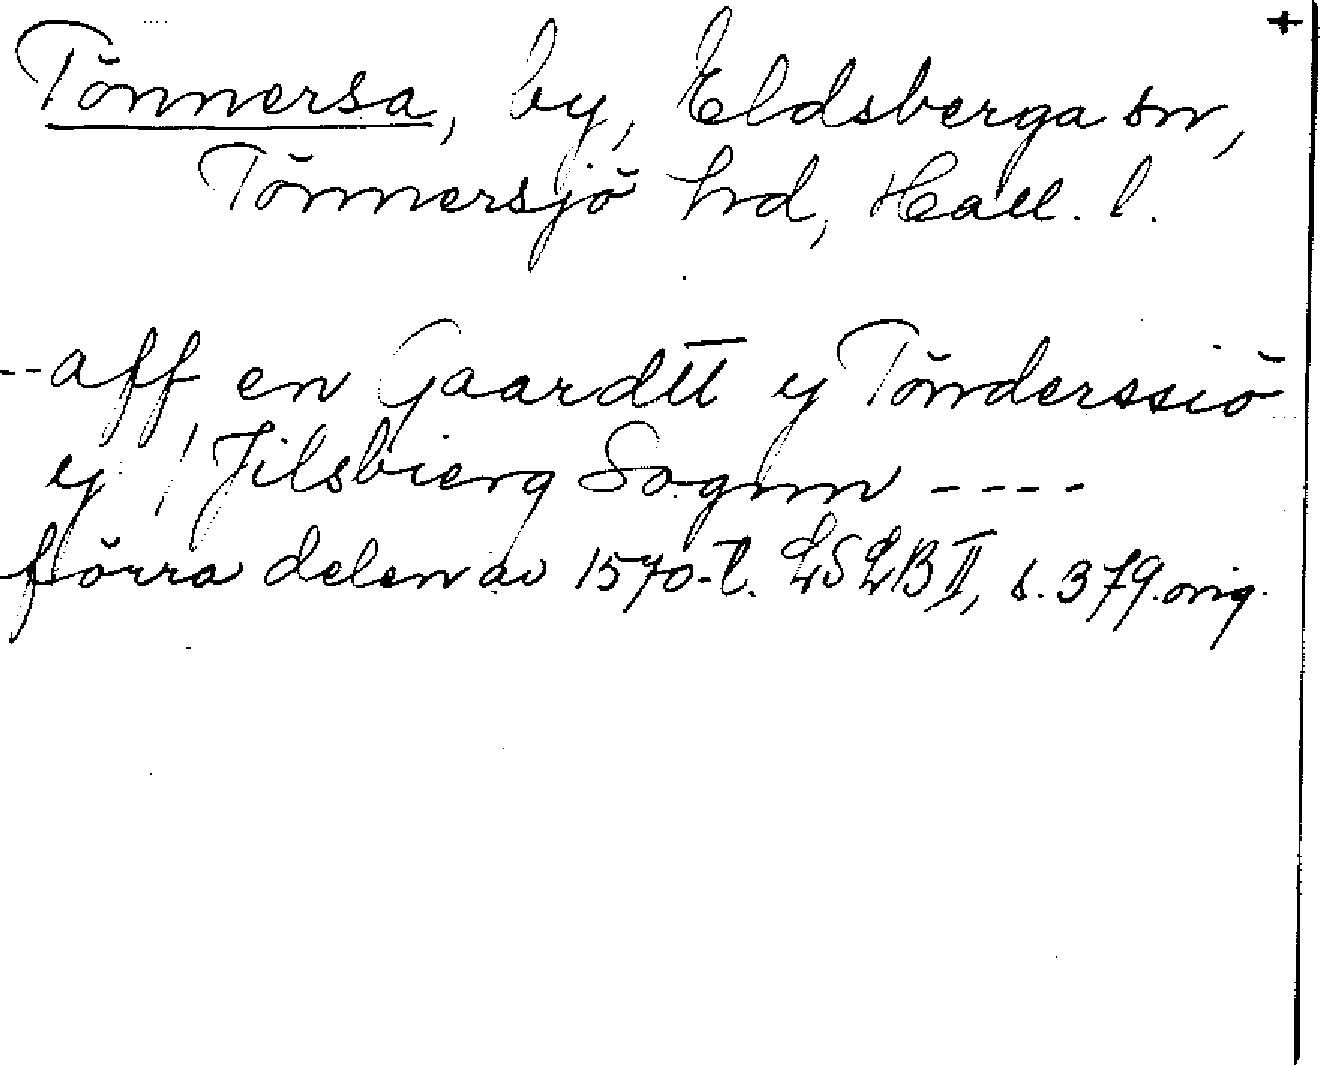 +
Tönnersa, by, Eldsberga sn,
Tönnersjö hrd, Hall. l.
--aff en Gaardtt y Tönderssiö
y / Jilsbierg Sognn ----
förra delen av 1570-t. LSLB II, s. 379. orig.